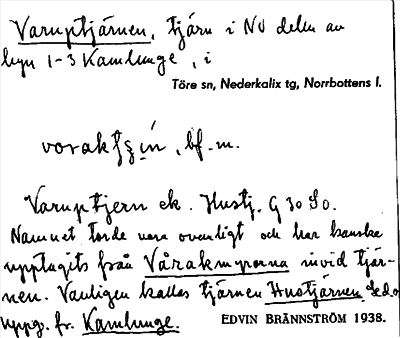 Varuptjärnen, tjärn i NV delen av
byn 1-3 Kamlunge, i
Töre sn, Nederkalix tg, Norrbottens l.
bf. m.
Varuptjern ek. Hustj. G 30 So.
Namnet torde vara ovanligt och har kanske
upptagits från Vårakmyrorna invid tjär-
nen. Vanligen kallas tjärnen Hustjärnen
uppg. fr. Kamlunge. EDVIN BRÄNNSTRÖM 1938.